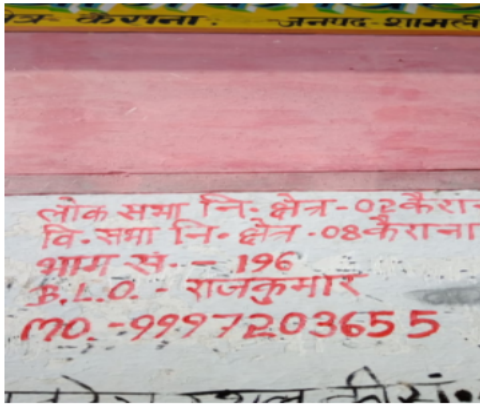 त्र- कैराना. जनपद-शामली
लोक सभा नि. क्षेत्र-02 कैराना
वि.सभा नि. क्षेत्र.08 कैराना
भाग सं. - 196
B.L.O. - राजकुमार
mo.-9997203655
स्थल की सं.